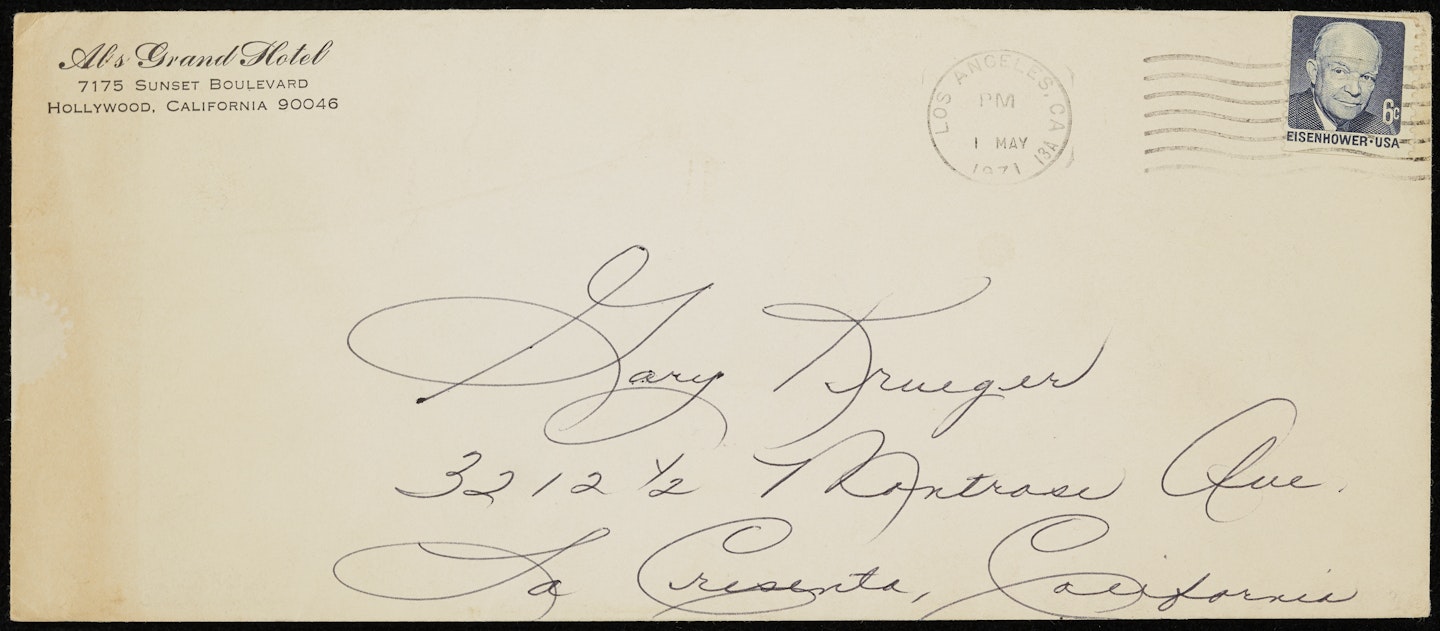 Al's Grand Hotel
7175 Sunset Boulevard
Hollywood, California 90046
LOS ANGELES, CA 13A
PM
1 MAY
1971
6c
EISENHOWER·USA
Gary Krueger
3212 1/2 Montrose Ave.
La Cresenta, California